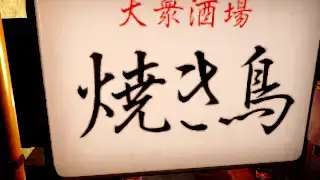 大衆酒場
焼き鳥